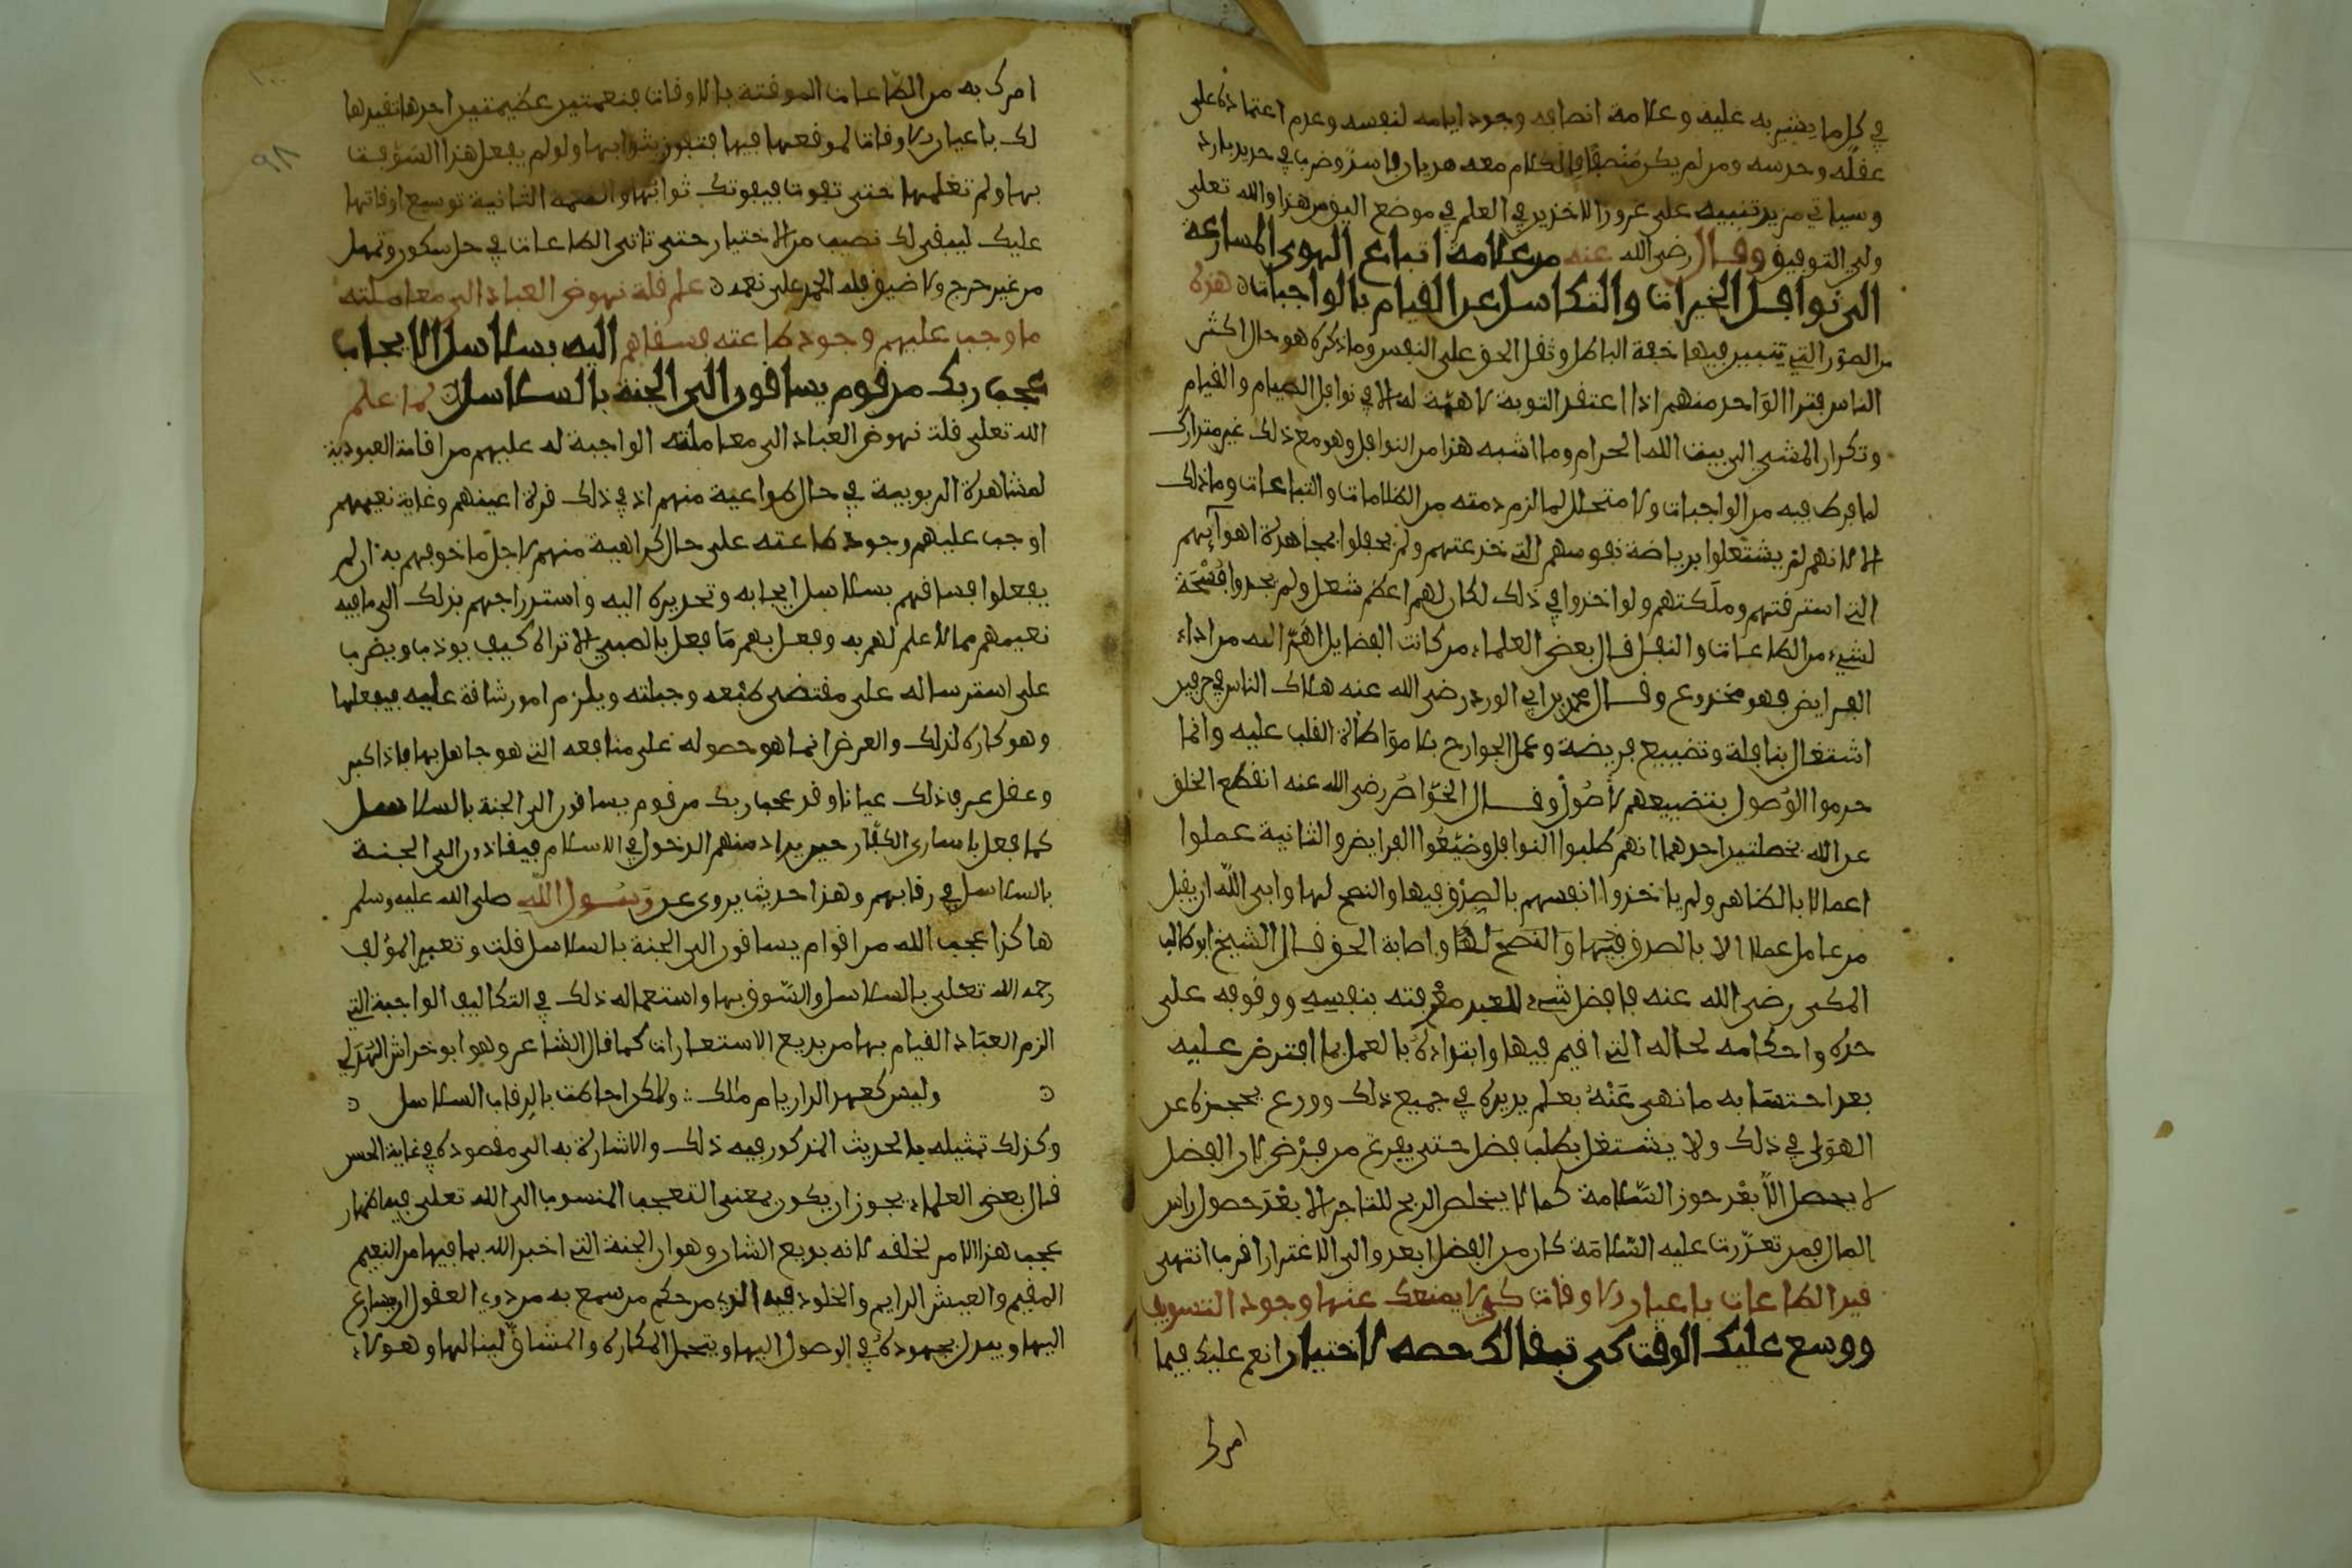 في كل ما يشير به عليه وعلامة انصافه وجود ايامه لنفسه وعدم اعتماده على
عقله وحدسه ومن لم يكن منصفا فالكلام معه هذيان فاسد وضرب في حديد بارد
وسياتي مزيد تنبيه على غرور الاخذين في العلم في موضع اليق من هذا والله تعلى
ولي التوفيق وقال رضي الله عنه من علامة اتباع الهوى المسارعة
الى نوافل الخيرات والتكاسل عن القيام بالواجبات هذه
من الصور التي تتبين فيها خفة الباطل وثقل الحق على النفس وما ذكره هو حال اكثر
الناس فترا الواحد منهم اذا اعتقد التوبة لا همة له الا في نوافل الصيام والقيام
وتكرار المشي الى بيت الله الحرام وما اشبه هذا من النوافل وهو مع ذلك غير متدارك
لما فرط فيه من الواجبات ولا متحلل لما لزم ذمته من الظلامات والتباعات وما ذلك
الا لانهم لم يشتغلوا برياضة نفوسهم التي خدعتهم ولم يحفلوا بمجاهدة اهوايهم
التي استرقتهم وملكتهم ولو اخذوا في ذلك لكان لهم اعظم شغل ولم يجدوا فسحة
لشيء من الطاعات والنفل قال بعض العلماء من كانت الفضايل اهم اليه من اداء
الفرايض فهو مخدوع وقال محمد بن ابي الورد رضي الله عنه هلاك الناس في حرفين
اشتغال بنافلة وتضييع فريضة وعمل الجوارح بلا مواطاة القلب عليه وانما
حرموا الوصول بتضييعهم الاصول وقال الخواص رضي الله عنه انقطع الخلق
عن الله بخصلتين احدهما انهم طلبوا النوافل وضيعوا الفرايض والثانية عملوا
اعمالا بالظاهر ولم ياخذوا انفسهم بالصدق فيها والنصح لها وابى الله ان يقبل
من عامل عملا الا بالصدق فيها والنصح لها واصابة الحق قال الشيخ ابو طالب
المكي رضي الله عنه فافضل شيء للعبد معرفته بنفسه ووقوفه على
حده واحكامه لحاله التي اقيم فيها وابتداؤه بالعمل بما افترض عليه
بعد اجتنابه ما نهي عنه بعلم يدبره في جميع ذلك وورع يحجزه عن
الهوى في ذلك ولا يشتغل بطلب فضل حتى يفرغ من فرض لان الفضل
لا يحصل الا بعد حوز السلامة كما لا يخلص الربح للتاجر الا بعد حصول راس
المال فمن تعذرت عليه السلامة كان من الفضل ابعد والى الاغترار اقرب انتهى
قيد الطاعات باعيان الاوقات كي لا يمنعك عنها وجود التسويف
ووسع عليك الوقت كي تبقا لك حصه الاختيار انعم عليك فيما
امرك
امرك به من الطاعات الموقتة بالاوقات بنعمتين عظيمتين احدها تقيدها
لك باعيان الاوقات لتوقعها فيها فتفوز بثوابها ولو لم يفعل هذا السوفت
بها ولم تعلمها حتى تفوت فيفوتك ثوابها والنعمة الثانية توسيع اوقاتها
عليك ليبقى لك نصيب من الاختيار حتى تاتي الطاعات في حل سكون وتمهل
من غير حرج ولا ضيق فله الحمد على نعمه علم قلة نهوض العباد الى معاملته
ما وجب عليهم وجود طاعته فسقاهم اليه بسلاسل الايجاب
عجب ربك من قوم يساقون الى الجنة بالسلاسل لما علم
الله تعلى قلة نهوض العباد الى معاملته الواجبة له عليهم من اقامة العبودية
لمشاهدة الربوبية في حال طواعية منهم اذ في ذلك قرة اعينهم وغاية نعيمهم
اوجب عليهم وجود طاعته على حال كراهية منهم لاجل ما خوفهم به ان لم
يفعلوا فساقهم بسلاسل ايجابه وتحذيره اليه واستدراجهم بذلك الى ما فيه
نعيمهم مما لا علم لهم به وفعل بهم ما يفعل بالصبي الا تراه كيف يوذب ويضرب
على استرساله على مقتضى طبعه وجبلته ويلزم امور شاقة عليه فيفعلها
وهو كاره لذلك والغرض انما هو حصوله على منافعه التي هو جاهل بها فاذا كبر
وعقل عرف ذلك عيانا وقد عجب ربك من قوم يساقون الى الجنة بالسلاسل
كما فعل باسارى الكفار حين يراد منهم الدخول في الاسلام فيقادون الى الجنة
بالسلاسل في رقابهم وهذا حديث يروى عن رسول الله صلى الله عليه وسلم
هاكذا عجب الله من اقوام يساقون الى الجنة بالسلاسل قلت وتعبير المؤلف
رحمه الله تعلى بالسلاسل والسوق بها واستعماله ذلك في التكاليف الواجبة التي
الزم العباد القيام بها من بديع الاستعارات كما قال الشاعر وهو ابو خراش الهذلي
وليس كعهد الدار يام ملك ولكن احاطت بالرقاب السلاسل
وكذلك تمثيله بالحديث المذكور فيه ذلك والاشارة به الى مقصوده في غاية الحسن
قال بعض العلماء يجوز ان يكون بمعنى التعجب المنسوب الى الله تعلى فيه اظهار
عجب هذا الامر لخلقه لانه بديع الشان وهو ان الجنة التي اخبر الله بما فيها من النعيم
المقيم والعيش الدايم والخلود فيه الذي من حكم من سمع به من ذوي العقول ان يسارع
اليها ويبذل مجهوده في الوصول اليها ويتحمل المكاره والمشاق لينالها وهولاء
٩٨